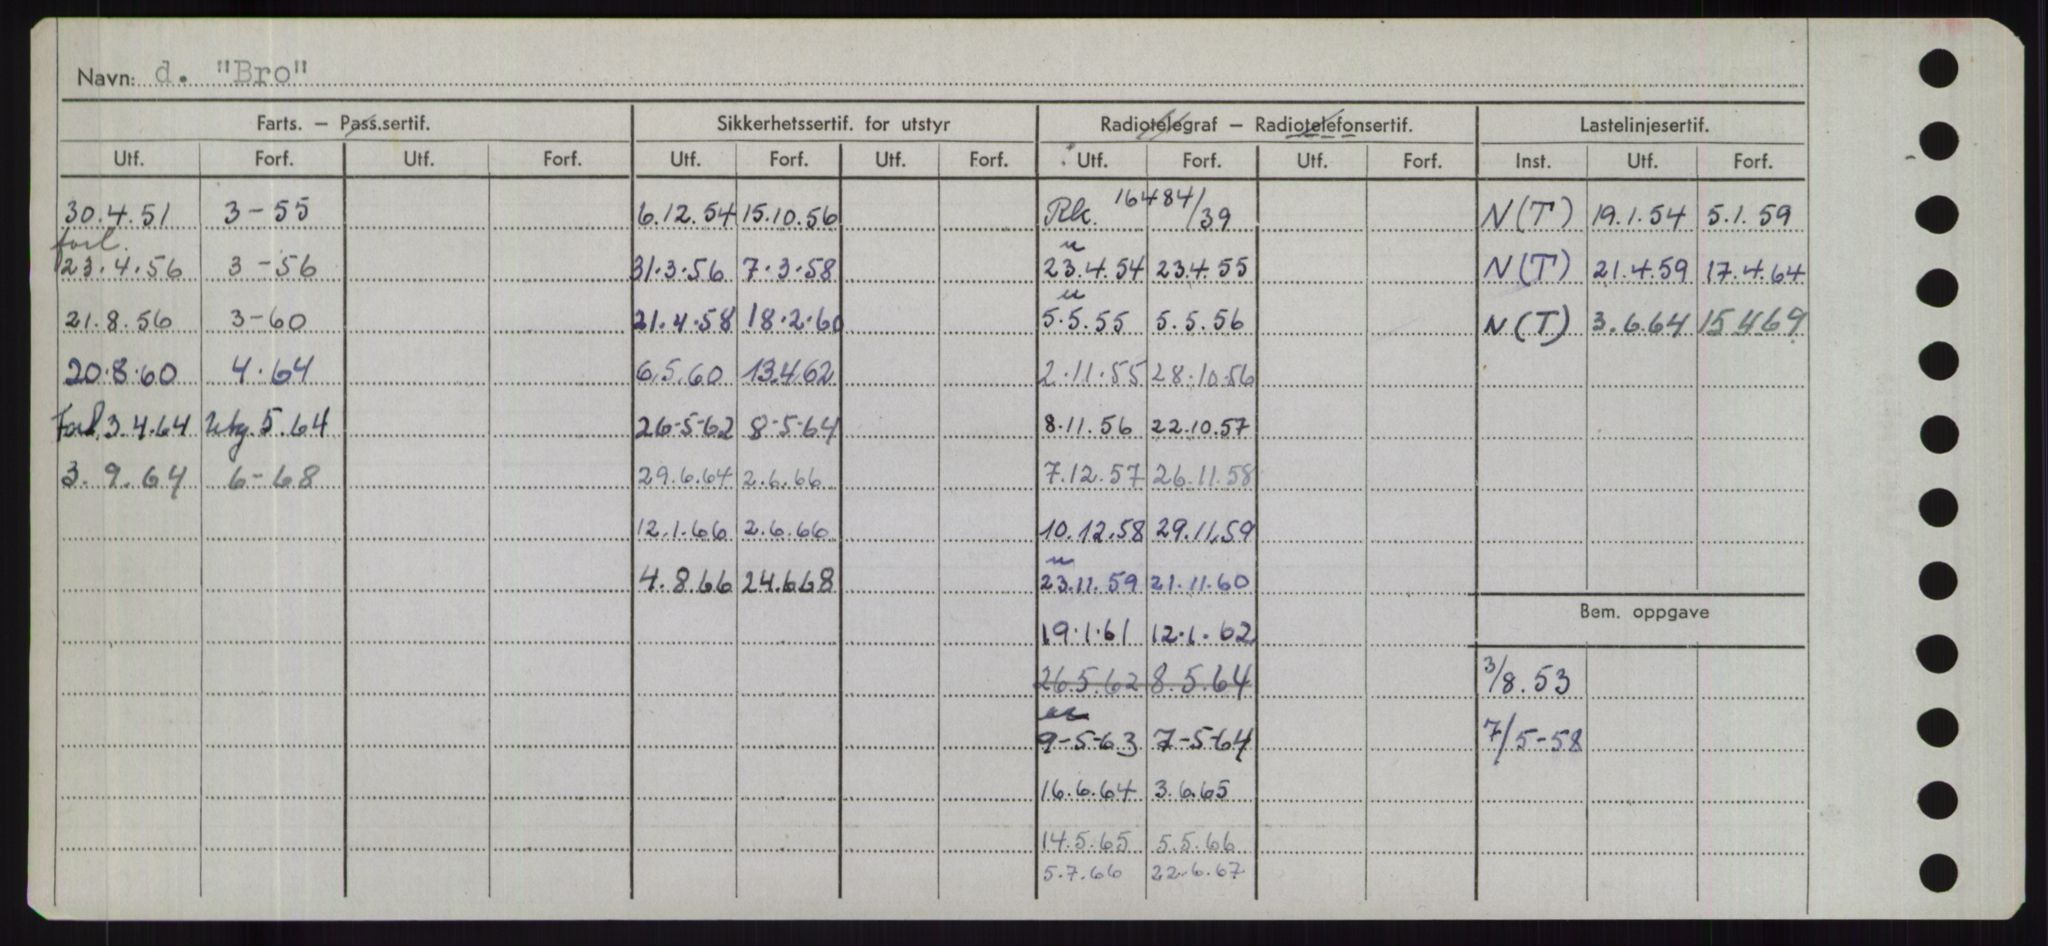 Navn: d. "Bro"
Farts. – Pass.sertif. Sikkerhetssertif. for utstyr Radiotelegraf – Radiotelefonsertif. Lastelinjesertif.
Utf. Forf. Utf. Forf. Utf. Forf. Utf. Forf. Utf. Forf. Utf. Forf. Inst. Utf. Forf.
30.4.51 3-55 6.12.54 15.10.56 Rk. 16484/39 N(T) 19.1.54 5.1.59
forl. u
23.4.56 3-56 31.3.56 7.3.58 23.4.54 23.4.55 N(T) 21.4.59 17.4.64
u
21.8.56 3-60 21.4.58 18.2.60 5.5.55 5.5.56 N(T) 3.6.64 15.4.69
20.8.60 4.64 6.5.60 13.4.62 2.11.55 28.10.56
Forl. 3.4.64 Utg. 5.64 26-5-62 8-5-64 8.11.56 22.10.57
3.9.64 6-68 29.6.64 2.6.66 7.12.57 26.11.58
12.1.66 2.6.66 10.12.58 29.11.59
u
4.8.66 24.6.68 23.11.59 21.11.60
Bem. oppgave
19.1.61 12.1.62
26.5.62 8.5.64 3/8.53
9-5-63 7-5-64 7/5-58
16.6.64 3.6.65
14.5.65 5.5.66
5.7.66 22.6.67